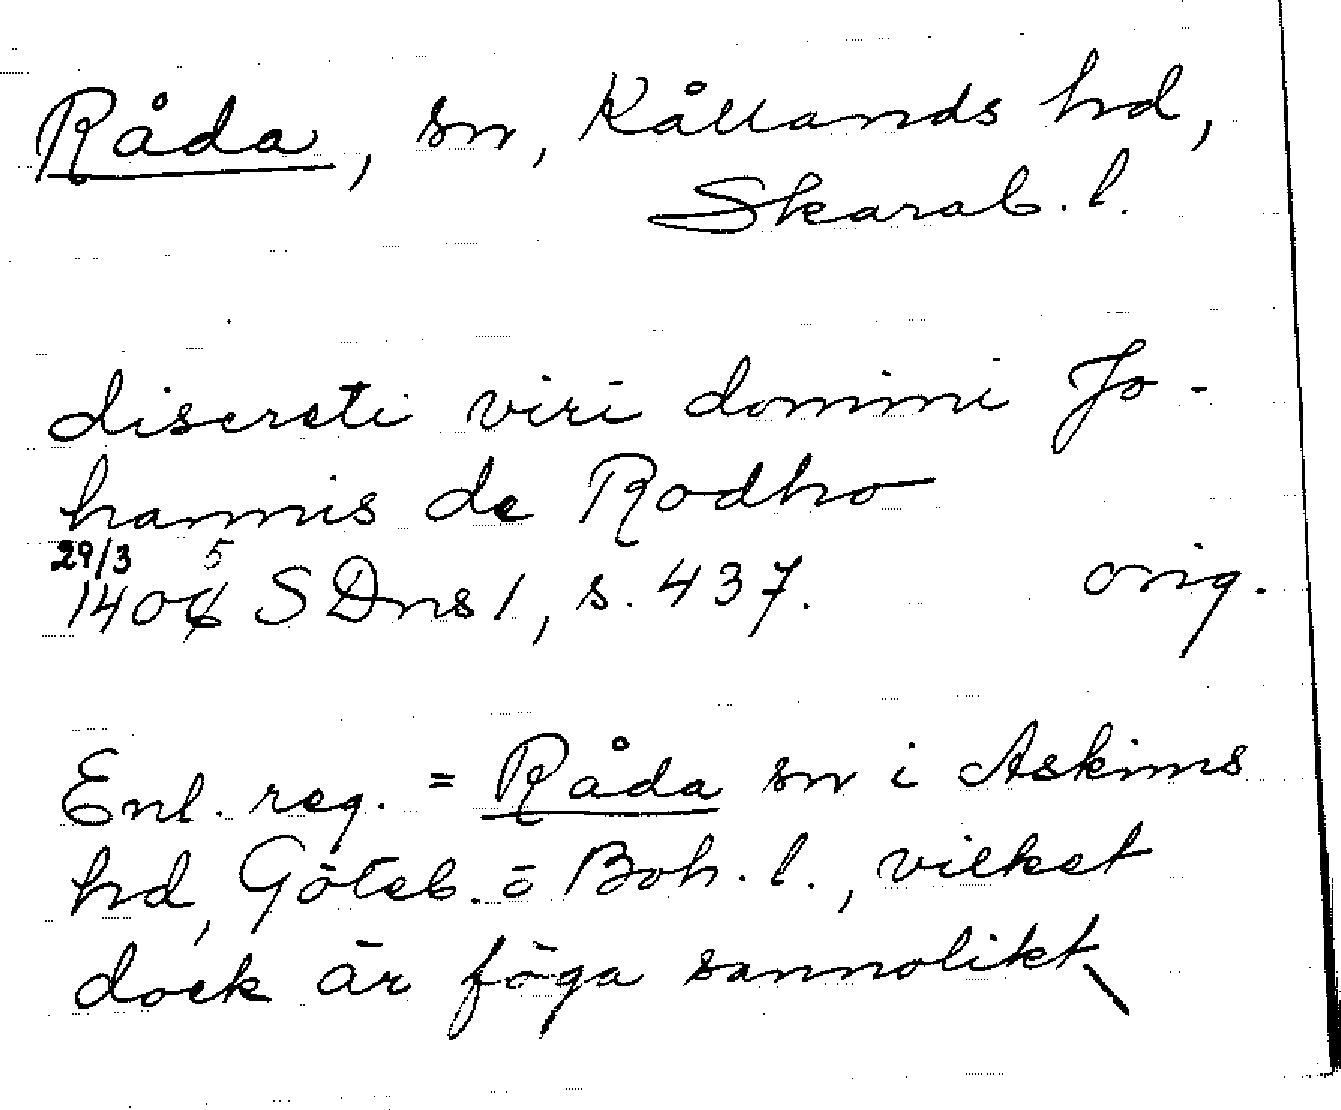 Råda, sn, Kållands hd,
Skarab. l.
discreti viri domini Jo-
hannis de Rodho
29/3 5
1406 SDns 1, s. 437. orig.
Enl. reg. = Råda sn i Askims
hd, Göteb. o Boh. l., vilket
dock är föga sannolikt